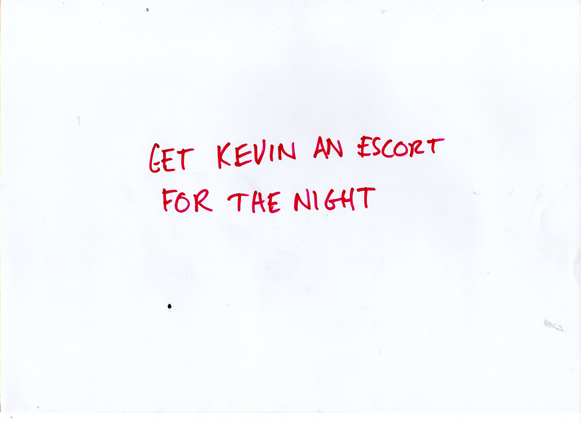 GET KEVIN AN ESCORT
FOR THE NIGHT